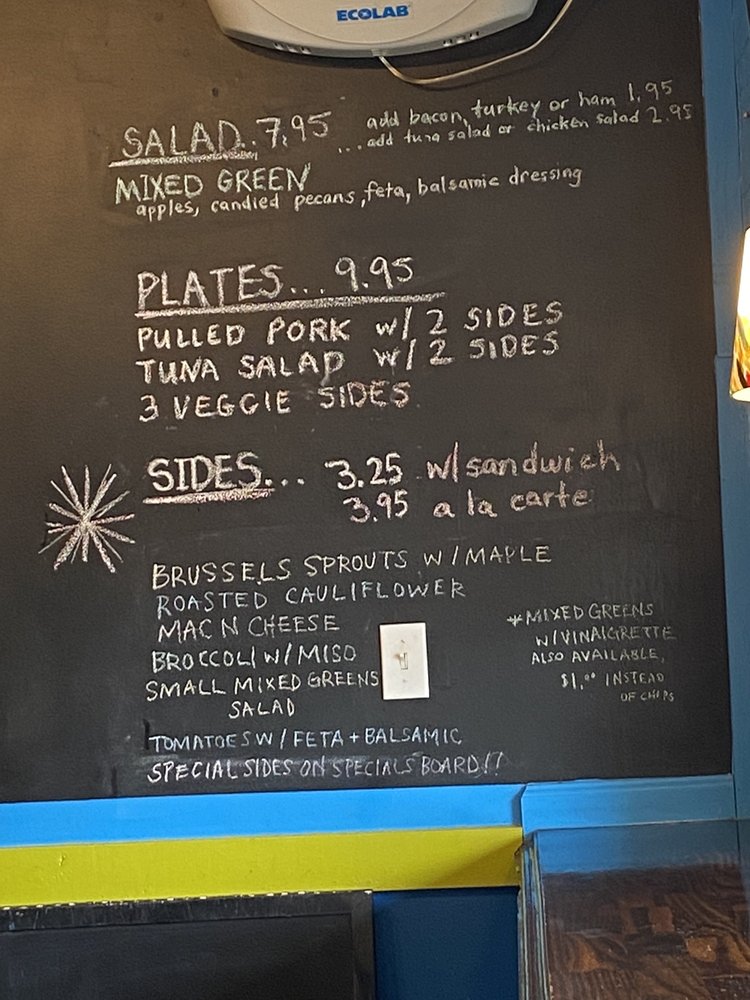 ECOLAB
SALAD..7.95
add bacon, turkey or ham 1.95
...add tuna salad or chicken salad 2.95
MIXED GREEN
apples, candied pecans, feta, balsamic dressing
PLATES... 9.95
PULLED PORK w/ 2 SIDES
TUNA SALAD w/ 2 SIDES
3 VEGGIE SIDES
SIDES... 3.25 w/sandwich
3.95 a la carte
BRUSSELS SPROUTS W/MAPLE
ROASTED CAULIFLOWER
MAC N CHEESE
BROCCOLI W/MISO
SMALL MIXED GREENS
SALAD
TOMATOES W/FETA + BALSAMIC
SPECIAL SIDES ON SPECIALS BOARD!!
*MIXED GREENS
W/VINAIGRETTE
ALSO AVAILABLE,
$1.00 INSTEAD
OF CHIPS